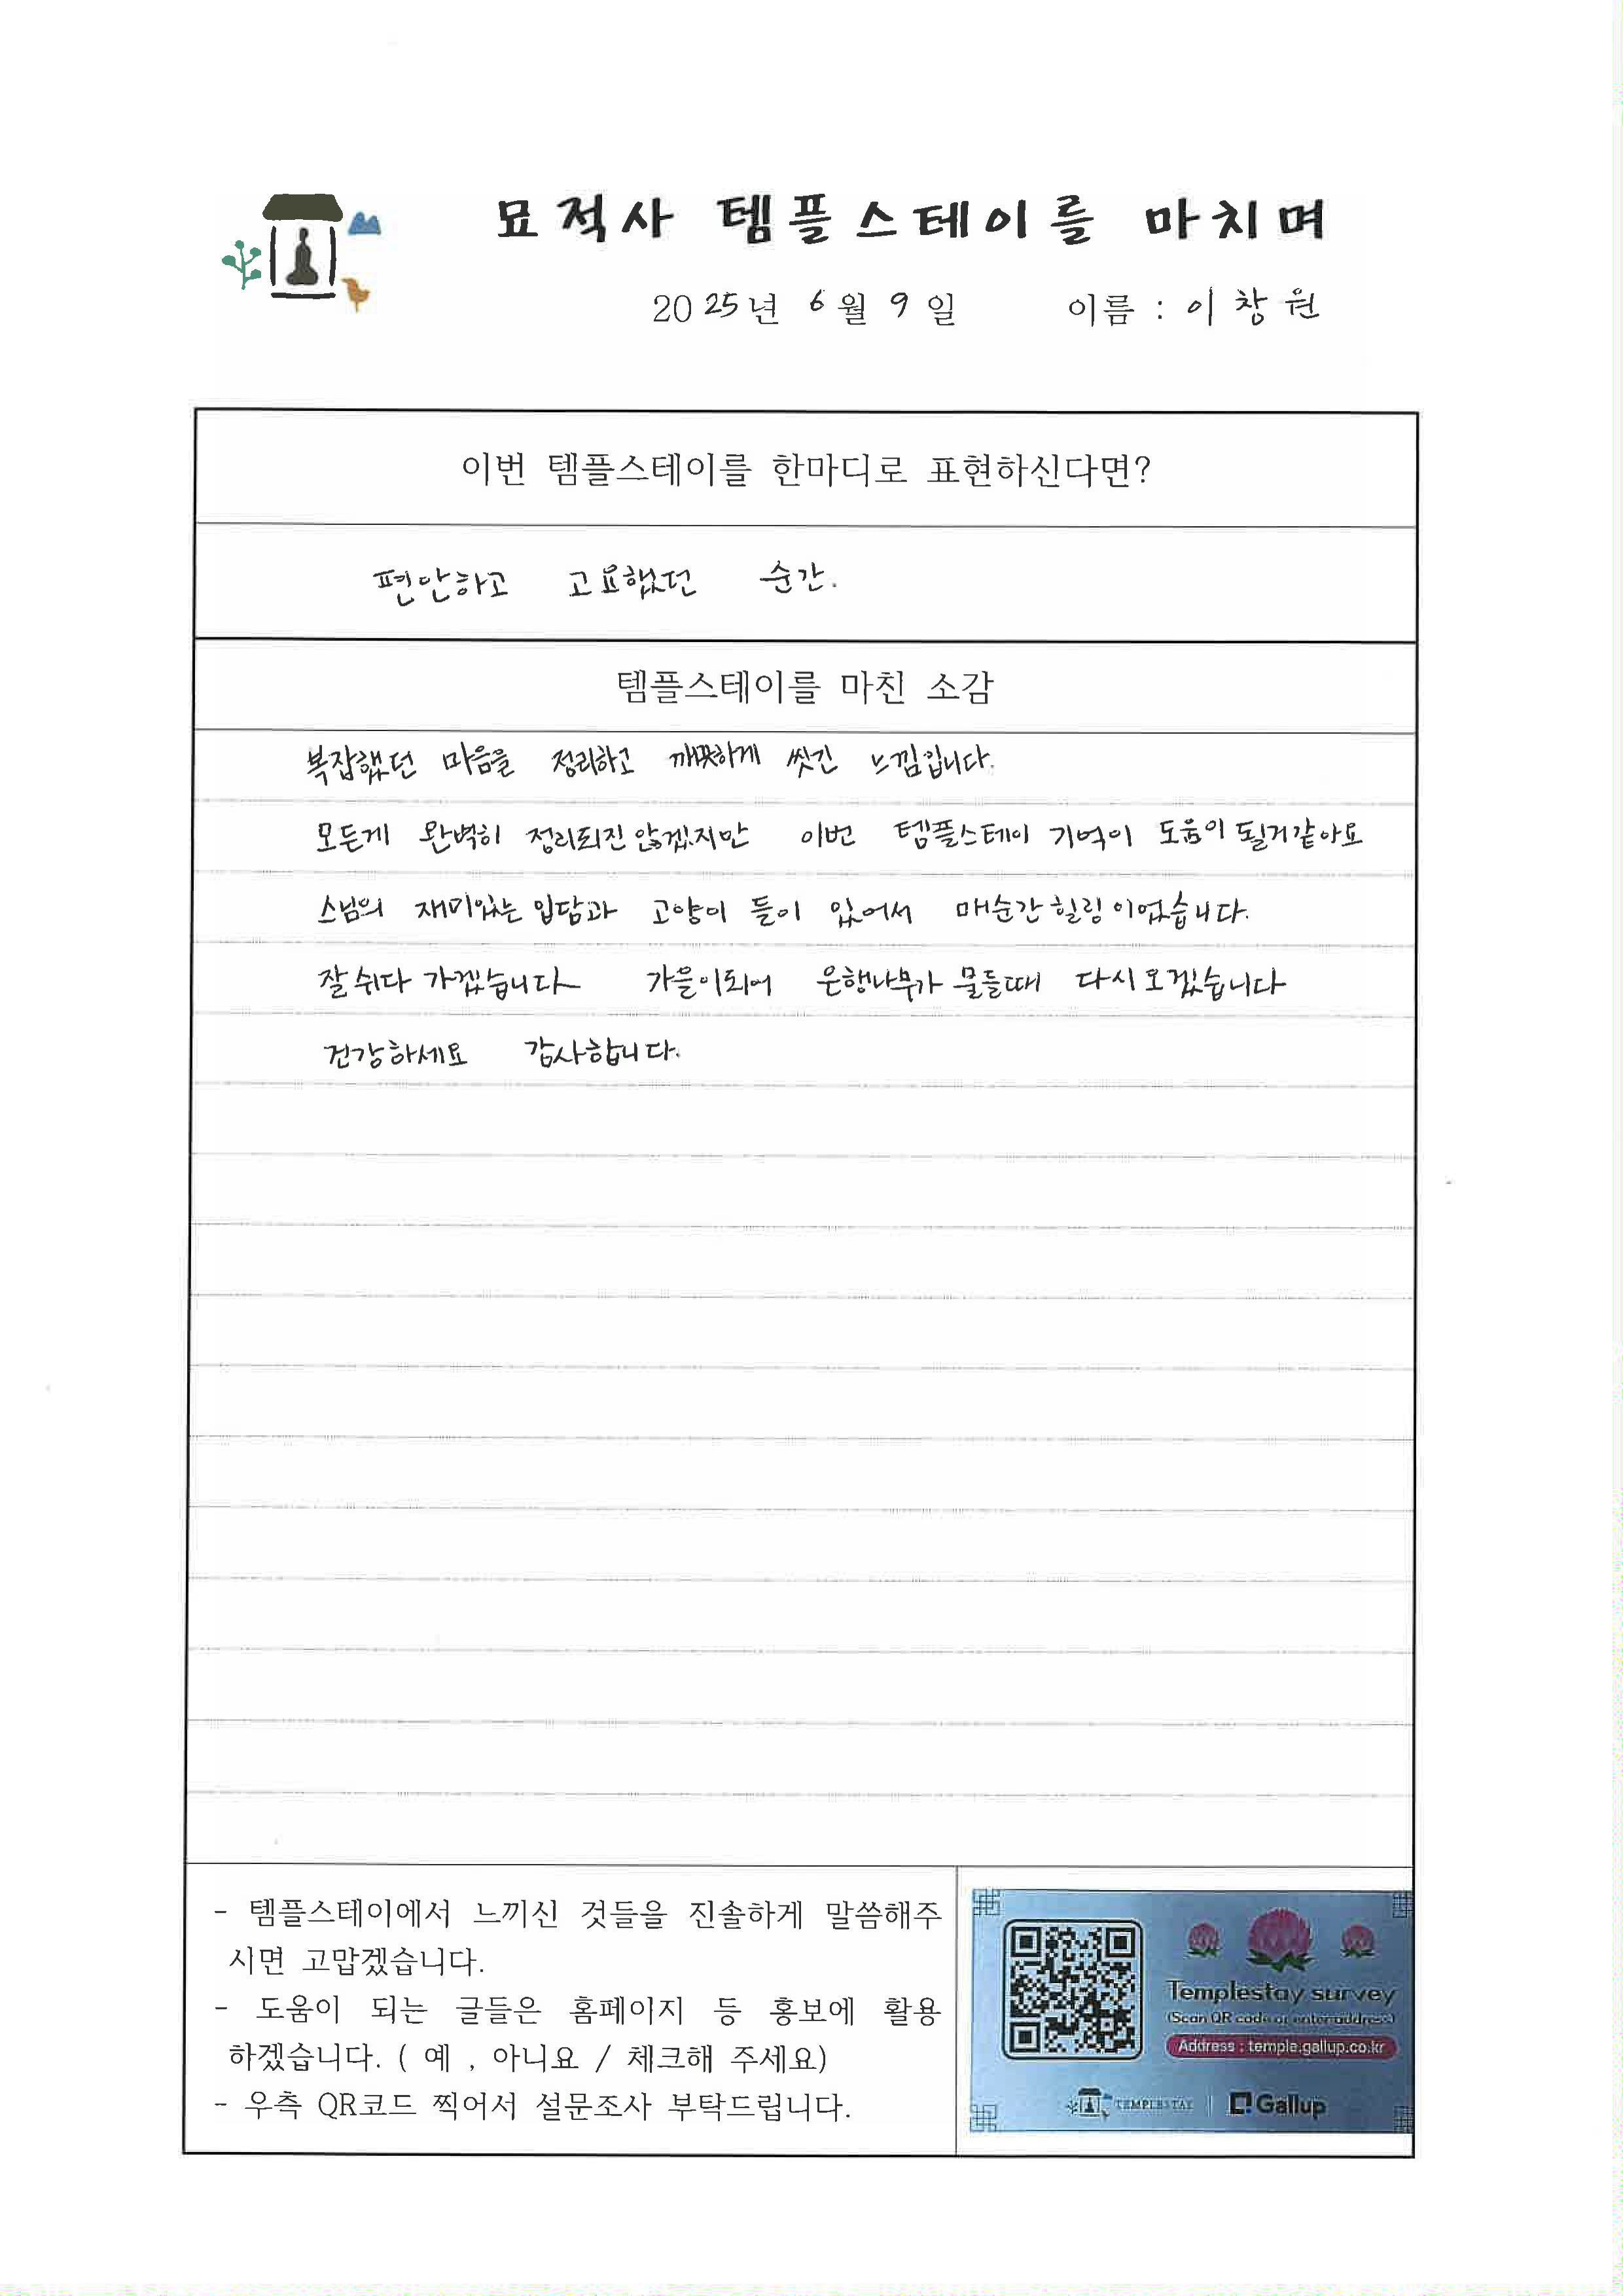 묘적사 템플스테이를 마치며
2025년 6월 9일 이름 : 이창원
이번 템플스테이를 한마디로 표현하신다면?
편안하고 고요했던 순간.
템플스테이를 마친 소감
복잡했던 마음을 정리하고 깨끗하게 씻긴 느낌입니다.
모든게 완벽히 정리되진 않겠지만 이번 템플스테이 기억이 도움이 될거같아요
스님의 재미있는 입담과 고양이 들이 있어서 매순간 힐링이었습니다.
잘 쉬다 가겠습니다 가을이되어 은행나무가 물들때 다시 오겠습니다
건강하세요 감사합니다.
- 템플스테이에서 느끼신 것들을 진솔하게 말씀해주
시면 고맙겠습니다.
- 도움이 되는 글들은 홈페이지 등 홍보에 활용
하겠습니다. ( 예 , 아니요 / 체크해 주세요)
- 우측 QR코드 찍어서 설문조사 부탁드립니다.
Templestay survey
(Scan QR code or enter address)
Address : temple.gallup.co.kr
TEMPLESTAY
Gallup